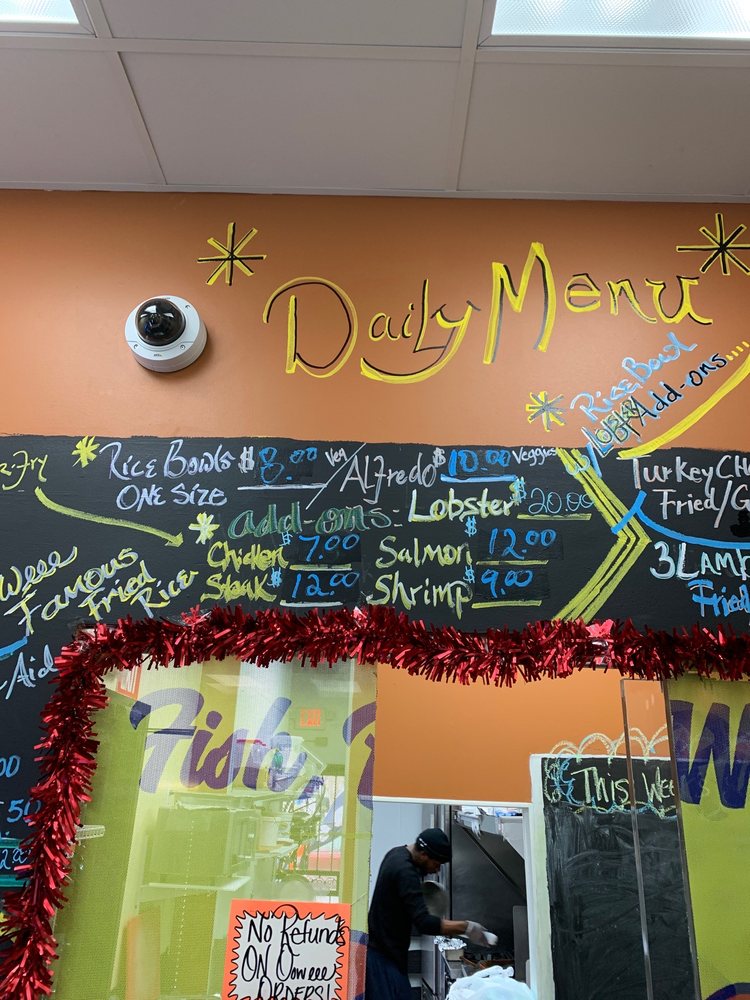 Daily Menu
Rice Bowl
Add-ons
Rice Bowls $8.00 Veg / Alfredo $10.00 Veggies
One Size
Lobster $20.00
add-ons:
Chicken $7.00
Salmon $12.00
Steak $12.00
Shrimp $9.00
Famous
Fried
Rice
-Aid
50
Turkey
Fried/
3 Lamb
Fried
Fish,
This Wee
W
No Refunds
ON Ooweee
ORDERS!